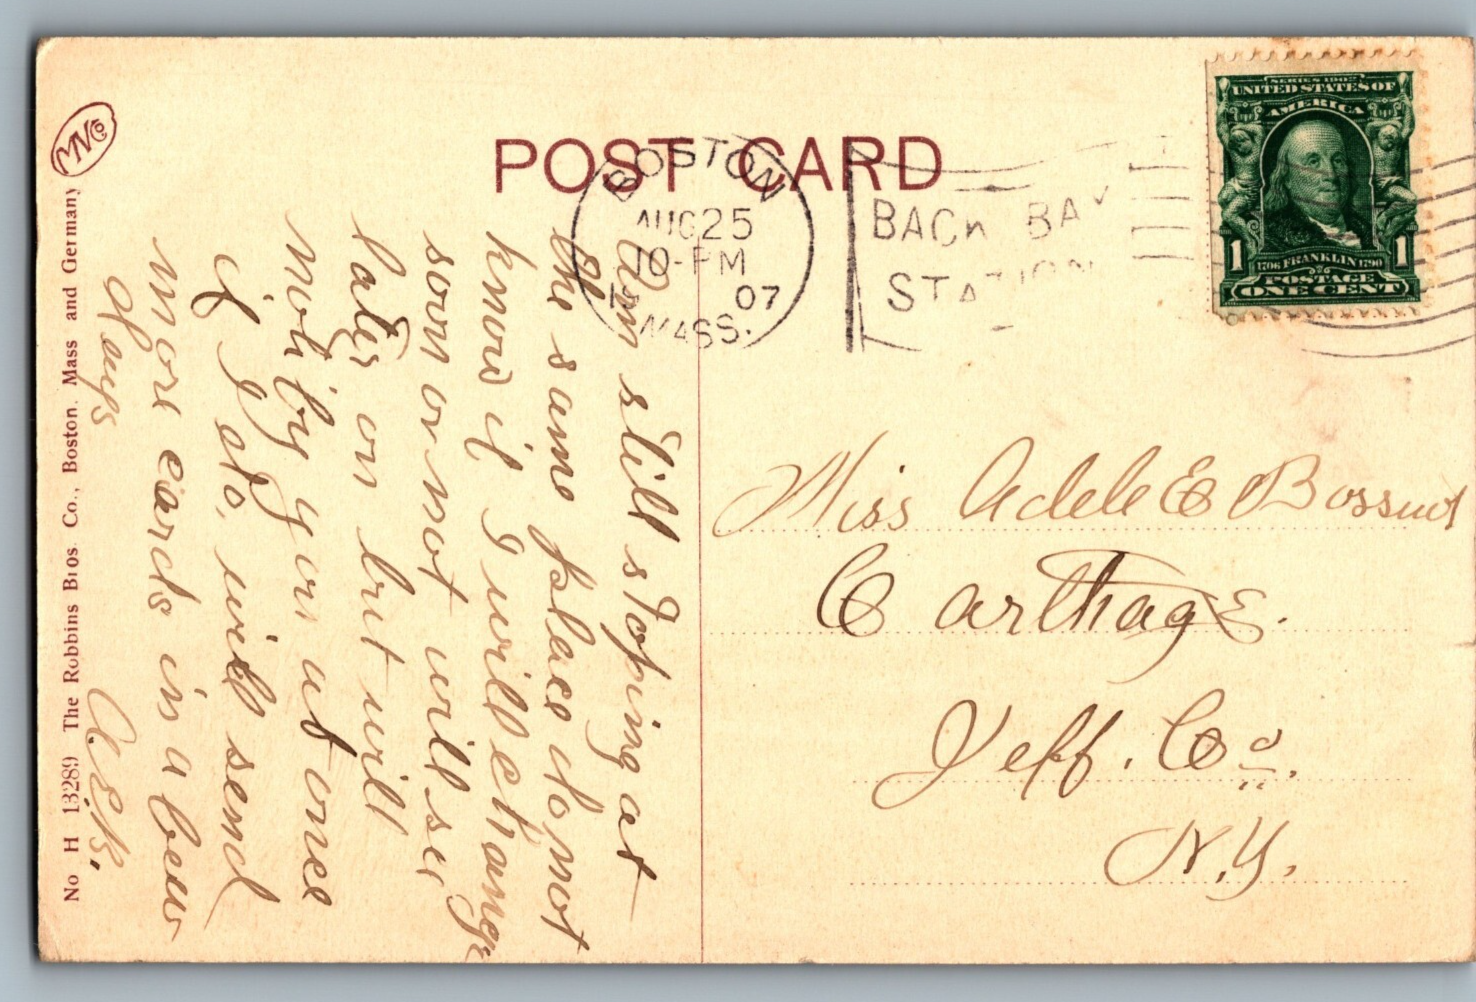 POST CARD
MVCo
No H 13289 The Robbins Bros. Co., Boston. Mass and Germany
BOSTON
AUG 25
10-PM
07
MASS.
BACK BAY
STATION
SERIES 1902
UNITED STATES OF
AMERICA
1 1
1706 FRANKLIN 1790
POSTAGE
ONE CENT
Am still stoping at
the same place do not
know if I will change
soon or not will see
later on but will
notify you at once
if I do, will send
more cards in a few
days A.E.K.
Miss Adele E Bossuot
Carthage.
Jeff. Co.
N.Y.